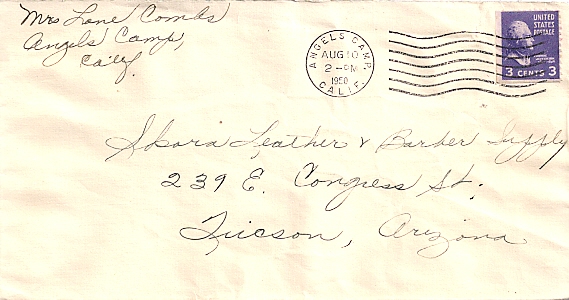 Mrs Lane Combs
Angels Camp,
Calif.
ANGELS CAMP,
AUG 10
2-PM
1950
CALIF.
UNITED
STATES
POSTAGE
3 CENTS 3
Leather & Barber Supply
239 E. Congress St.
Tucson, Arizona